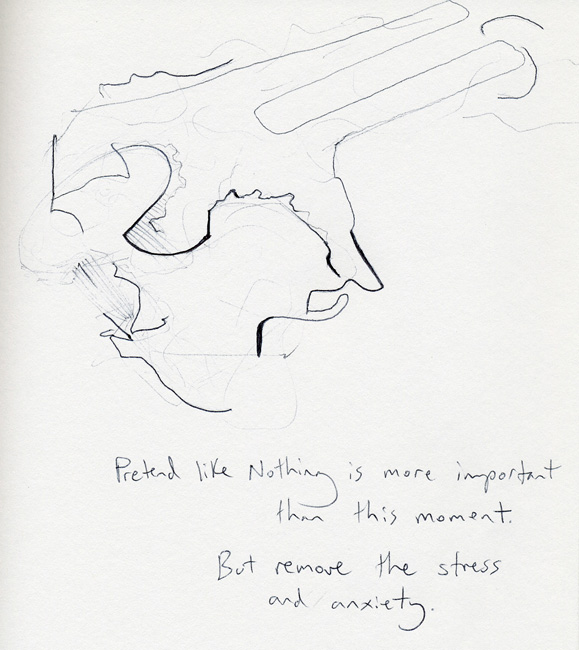 Pretend like Nothing is more important
than this moment.
But remove the stress
and anxiety.